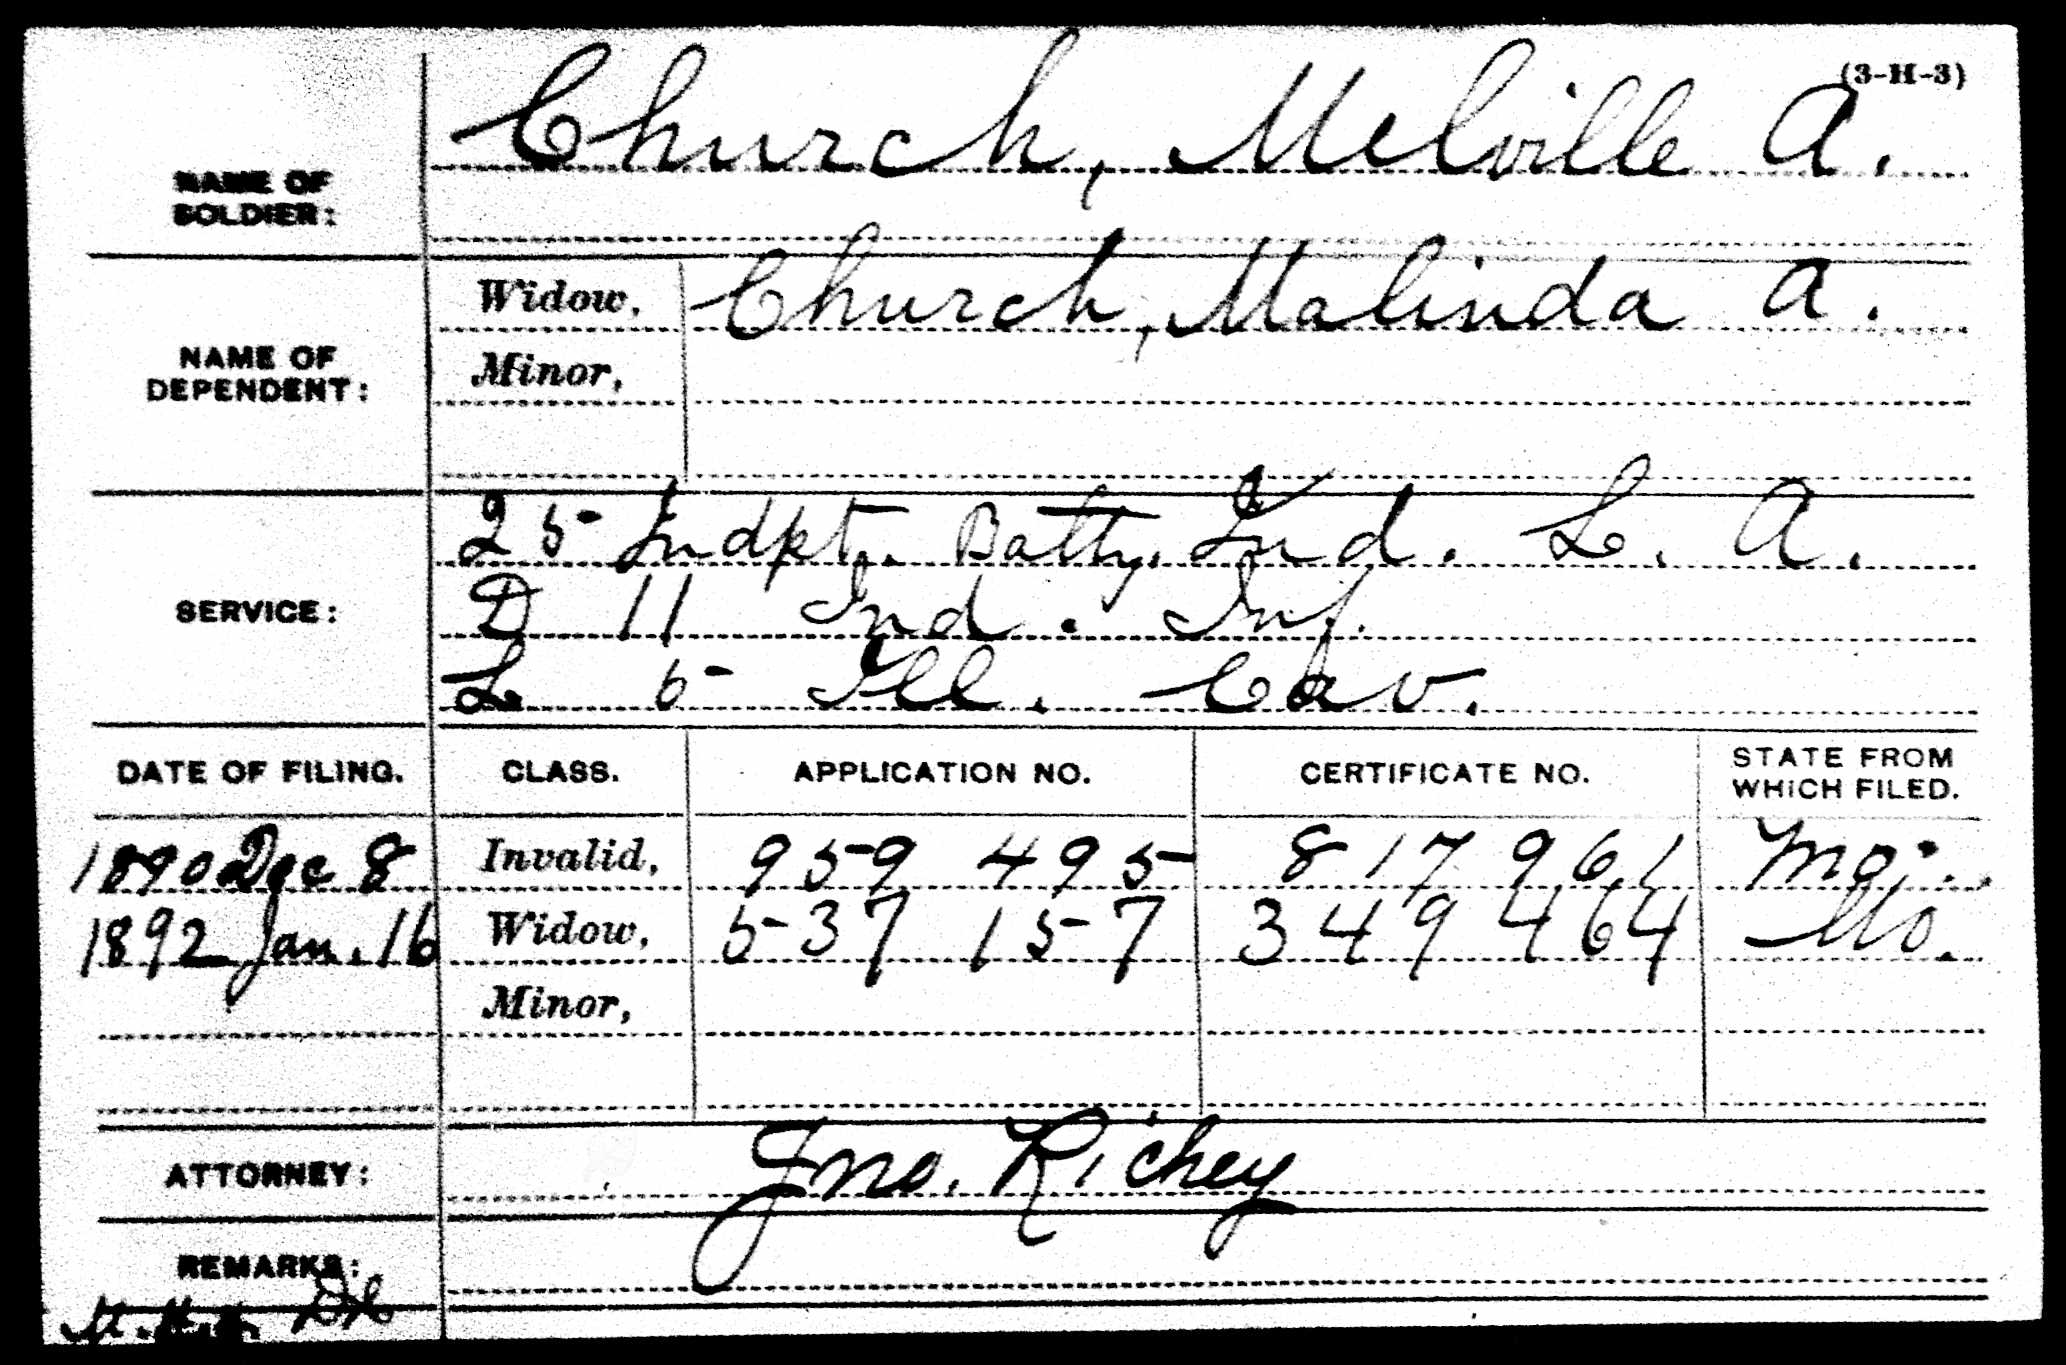 (3-H-3)
NAME OF SOLDIER: Church, Melville A.
NAME OF DEPENDENT:
Widow, Church, Malinda A.
Minor,
SERVICE:
25 Indpt. Batty. Ind. L. A.
D 11 Ind. Inf.
L 5 Ill. Cav.
DATE OF FILING. CLASS. APPLICATION NO. CERTIFICATE NO. STATE FROM WHICH FILED.
1890 Dec 8 Invalid, 959 495 817 961 Mo.
1892 Jan. 16 Widow, 537 157 349 464 Mo.
Minor,
ATTORNEY: Jno. Richey
REMARKS: